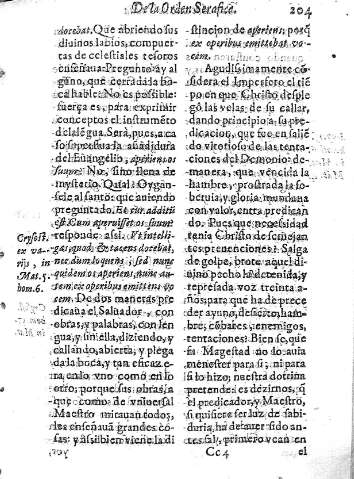 De la Orden Serafica.
204
docebat. Que abriendo sus
diuinos labios, compuer-
tas de celestiales tesoros
enseñaua. Pregunto yo al-
guno, que cerrada la bo-
ca hable? No es possible:
fuerça es, para exprimir
conceptos el instrumẽto
de la lẽgua. Serà, pues, a ca
so superflua la añadidura
del Euangelio, aperiens os
suum? No, sino llena de
mysterio. Qual? Oygan-
sele al santo: que auiendo
preguntado. Et cur additũ
est? Cum aperuisset os suum:
responde assi. Vt intelli-
gas quod, & tacens docebat,
nec dum loquens; sed nunc
quidem os aperiens, nunc au-
tem, ex operibus emittens vo
cem. De dos maneras pre-
dicaua el Saluador, con
obras, y palabras, con len
gua, y sin ella, diziendo, y
callando, abierta, y plega
da la boca, y tan eficaz e-
ra en lo vno como en lo
otro, porque sus obras, a
que como de vniuersal
Maestro mirauan todos,
les enseñauã grandes co-
sas: y assi bien viene la di
Crysost.
ex va-
rijs, in
Mat. 5.
hom. 6.
stincion de aperiens, porq̃
ex operibus emittebat vo-
cem.
Agudissimamente cõ-
sidera el Imperfeto el tiẽ
po en que Christo desple
gò las velas de su callar,
dando principio a su pre-
dicacion, que fue en saliẽ
do vitorioso de las tenta-
ciones del Demonio: de-
manera, que vencida la
hambre, prostrada la so-
beruia, y gloria mundana
con valor, entra predican
do. Pues que necessidad
tenia Christo de semejan
tes preuenciones? Salga
de golpe, brote aquel di-
uino pecho la detenida, y
represada voz treinta a-
ños; para que ha de prece
der ayuno, desierto, ham-
bre, cobardes, enemigos,
tentaciones? Bien se, que
su Magestad no lo auia
menester para si; ni para
si lo hizo; nuestra dotrina
pretende, a dezirnos, q̃
el predicador, y Maestro,
si quisiere ser luz de sabi-
duria, ha de arder sido an-
tes sal, primero vean en
Cc 4
el